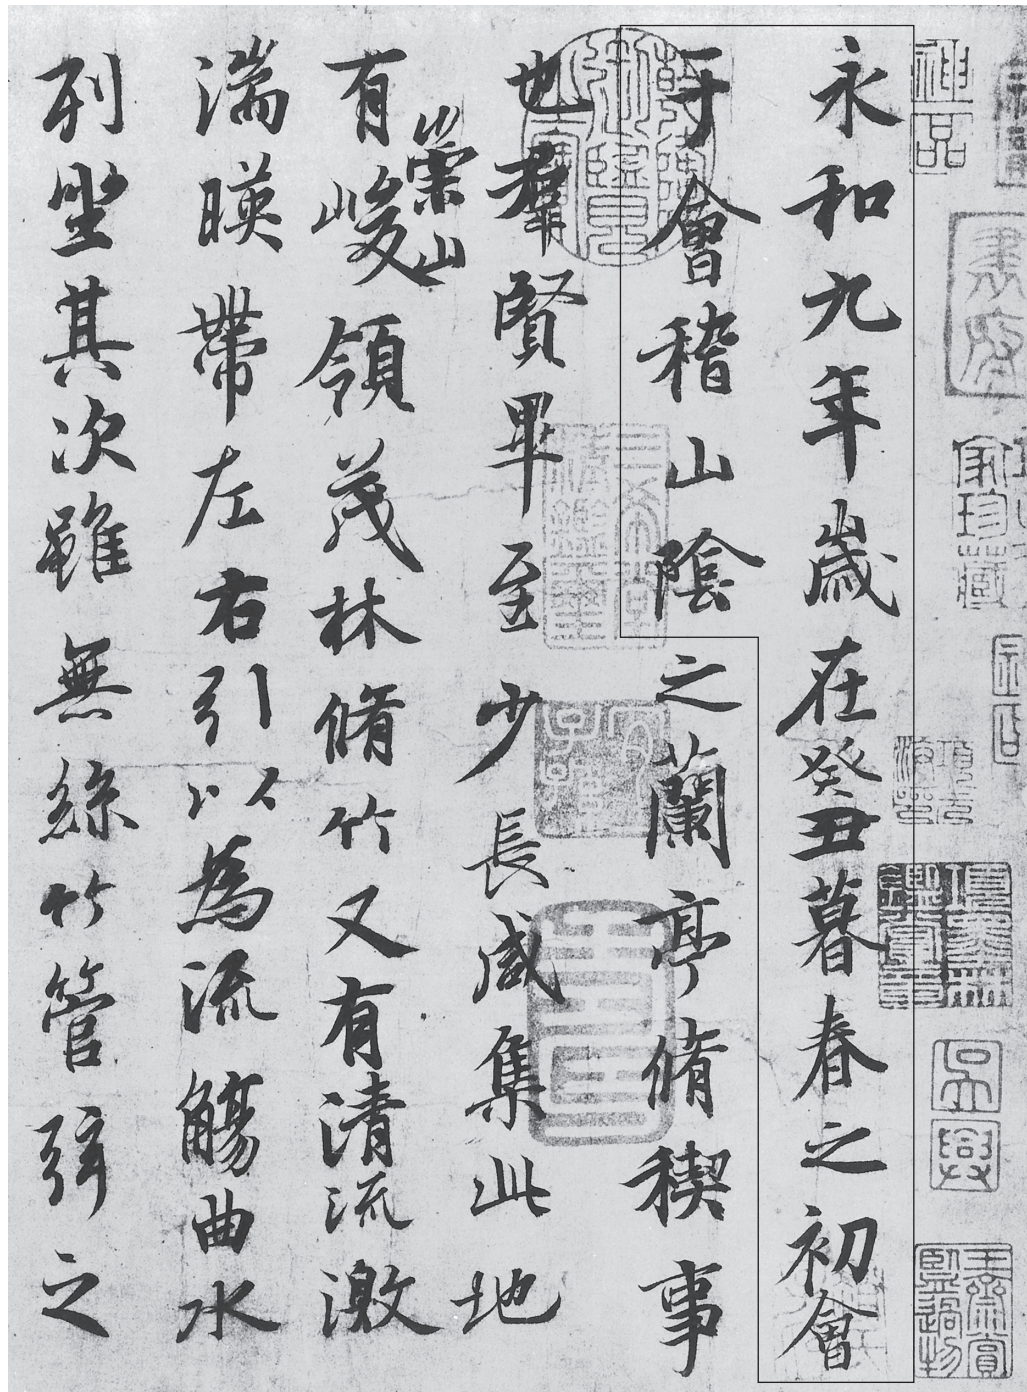 神品
吳興
永和九年歲在癸丑暮春之初會
于會稽山陰之蘭亭脩稧事
三希堂精鑑璽
宜子孫
也羣賢畢至少長咸集此地
崇山
有峻領茂林脩竹又有清流激
湍暎帶左右引以為流觴曲水
列坐其次雖無絲竹管弦之